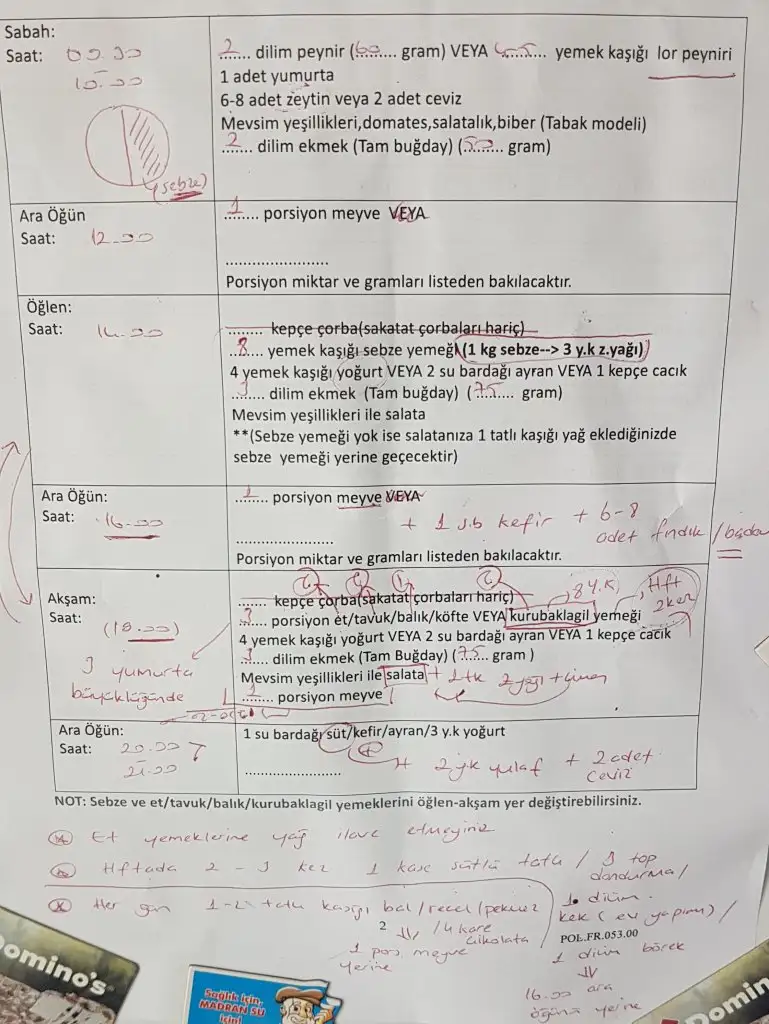 Sabah:
Saat: 09.30
10.00
(sebze)
2 dilim peynir (60 gram) VEYA 4-5 yemek kaşığı lor peyniri
1 adet yumurta
6-8 adet zeytin veya 2 adet ceviz
Mevsim yeşillikleri,domates,salatalık,biber (Tabak modeli)
2 dilim ekmek (Tam buğday) (50 gram)
Ara Öğün
Saat: 12.00
1 porsiyon meyve VEYA
........................
Porsiyon miktar ve gramları listeden bakılacaktır.
Öğlen:
Saat: 14.00
......... kepçe çorba(sakatat çorbaları hariç)
8 yemek kaşığı sebze yemeği (1 kg sebze--> 3 y.k z.yağı)
4 yemek kaşığı yoğurt VEYA 2 su bardağı ayran VEYA 1 kepçe cacık
3 dilim ekmek (Tam buğday) (75 gram)
Mevsim yeşillikleri ile salata
**(Sebze yemeği yok ise salatanıza 1 tatlı kaşığı yağ eklediğinizde
sebze yemeği yerine geçecektir)
Ara Öğün:
Saat: 16.00
1 porsiyon meyve VEYA
+ 1 s.b kefir + 6-8
adet fındık / badem
.......................
Porsiyon miktar ve gramları listeden bakılacaktır.
Akşam:
Saat:
(18.00)
3 yumurta
büyüklüğünde
........ kepçe çorba(sakatat çorbaları hariç)
8 y.k
Hft
2 kez
3 porsiyon et/tavuk/balık/köfte VEYA kurubaklagil yemeği
4 yemek kaşığı yoğurt VEYA 2 su bardağı ayran VEYA 1 kepçe cacık
3 dilim ekmek (Tam Buğday) (75 gram )
Mevsim yeşillikleri ile salata + 1 tk z yağı +
1 porsiyon meyve
Ara Öğün:
Saat: 20.00
21.00
1 su bardağı süt/kefir/ayran/3 y.k yoğurt
......................
+ 2 yk yulaf + 2 adet
ceviz
NOT: Sebze ve et/tavuk/balık/kurubaklagil yemeklerini öğlen-akşam yer değiştirebilirsiniz.
Et yemeklerine yağ ilave etmeyiniz
Hftada 2 - 3 kez 1 kase sütlü tatlı / 3 top
dondurma /
1 dilim
kek (ev yapımı) /
POL.FR.053.00
1 dilim börek
16.00 ara
öğünü yerine
Her gün 1-2 tatlı kaşığı bal / reçel / pekmez
2
/ 4 kare
çikolata
1 pors. meyve
yerine
Domino's
Sağlık için,
MADRAN SU
için!
Domin